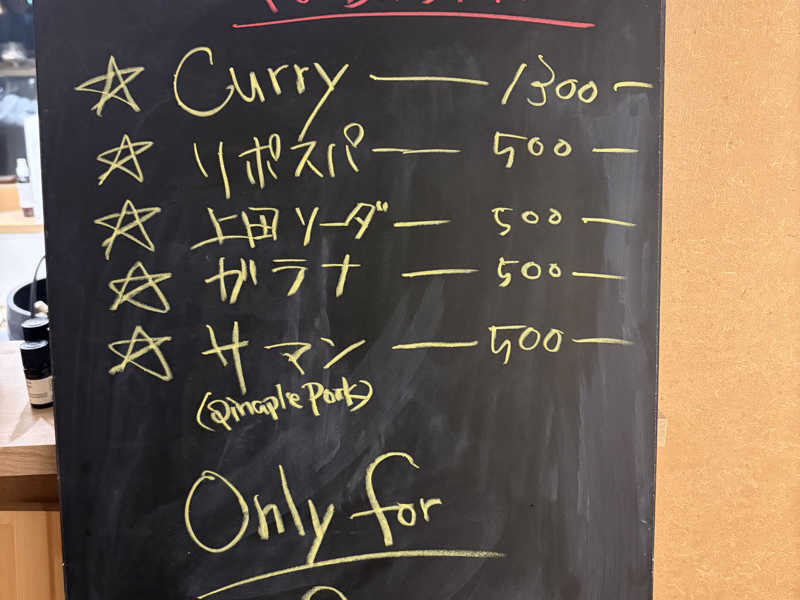 ☆ Curry — 1300 —
☆ リポスパ — 500 —
☆ 上田ソーダ — 500 —
☆ ガラナ — 500 —
☆ サマン — 500 —
(Pinaple Pork)
Only for